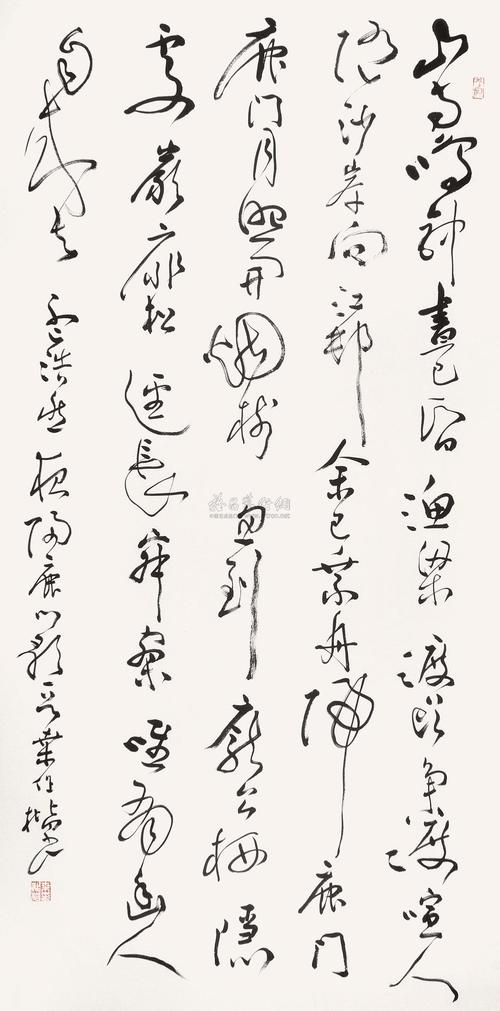 山寺鳴鐘晝已昏漁梁渡頭爭渡喧人
隨沙岸向江邨余亦乘舟歸鹿門
鹿門月照開煙樹忽到龐公棲隱
處巖扉松徑長寂寥唯有幽人
自來去 孟浩然夜歸鹿門歌